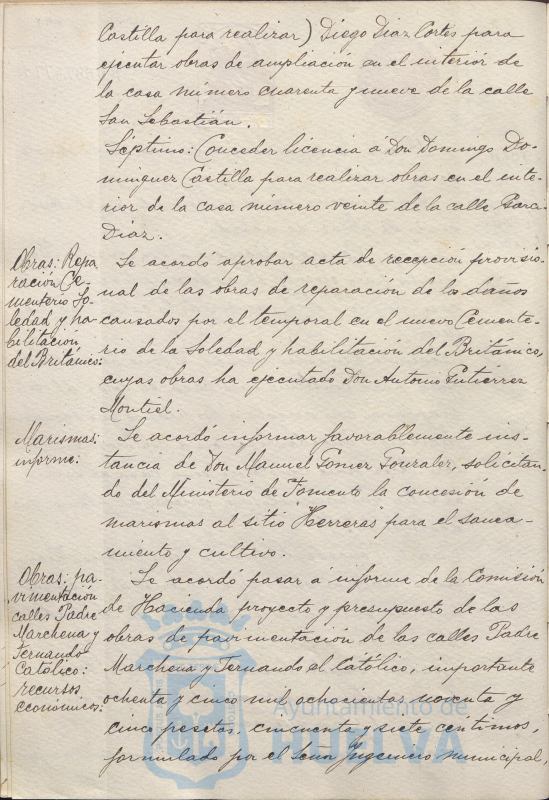 Castilla para realizar) Diego Diaz Cortés para
ejecutar obras de ampliación en el interior de
la casa número cuarenta y nueve de la calle
San Sebastián.
Séptimo: Conceder licencia á Don Domingo Do-
minguez Castilla para realizar obras en el inte-
rior de la casa número veinte de la calle
Diaz.
Obras: Repa
ración Ce-
menterio So-
ledad y ha-
bilitación
del Británico:
Se acordó aprobar acta de recepción provisio-
nal de las obras de reparación de los daños
causados por el temporal en el nuevo Cemente-
rio de la Soledad y habilitación del Británico,
cuyas obras ha ejecutado Don Antonio Gutiérrez
Montiel.
Marismas:
informe:
Se acordó informar favorablemente ins-
tancia de Don Manuel Gomez Gonzalez, solicitan-
do del Ministerio de Fomento la concesión de
marismas al sitio "Herreras" para el sanea-
miento y cultivo.
Obras: pa-
vimentación
calles Padre
Marchena y
Fernando
Católico:
recursos
económicos:
Se acordó pasar á informe de la Comisión
de Hacienda proyecto y presupuesto de las
obras de pavimentación de las calles Padre
Marchena y Fernando el Católico, importante
ochenta y cinco mil ochocientas noventa y
cinco pesetas, cincuenta y siete céntimos,
formulado por el señor Ingeniero municipal,
Ayuntamiento de
HUELVA